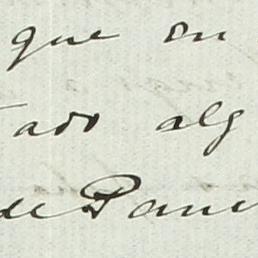 que en
tado alg
de Pana